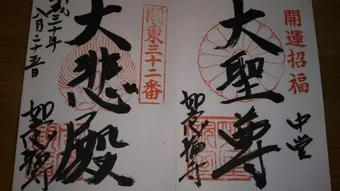 開運招福
大聖尊
中堂
如意輪寺
關東三十二番
大悲殿
平成三十年
八月二十五日
如意輪寺